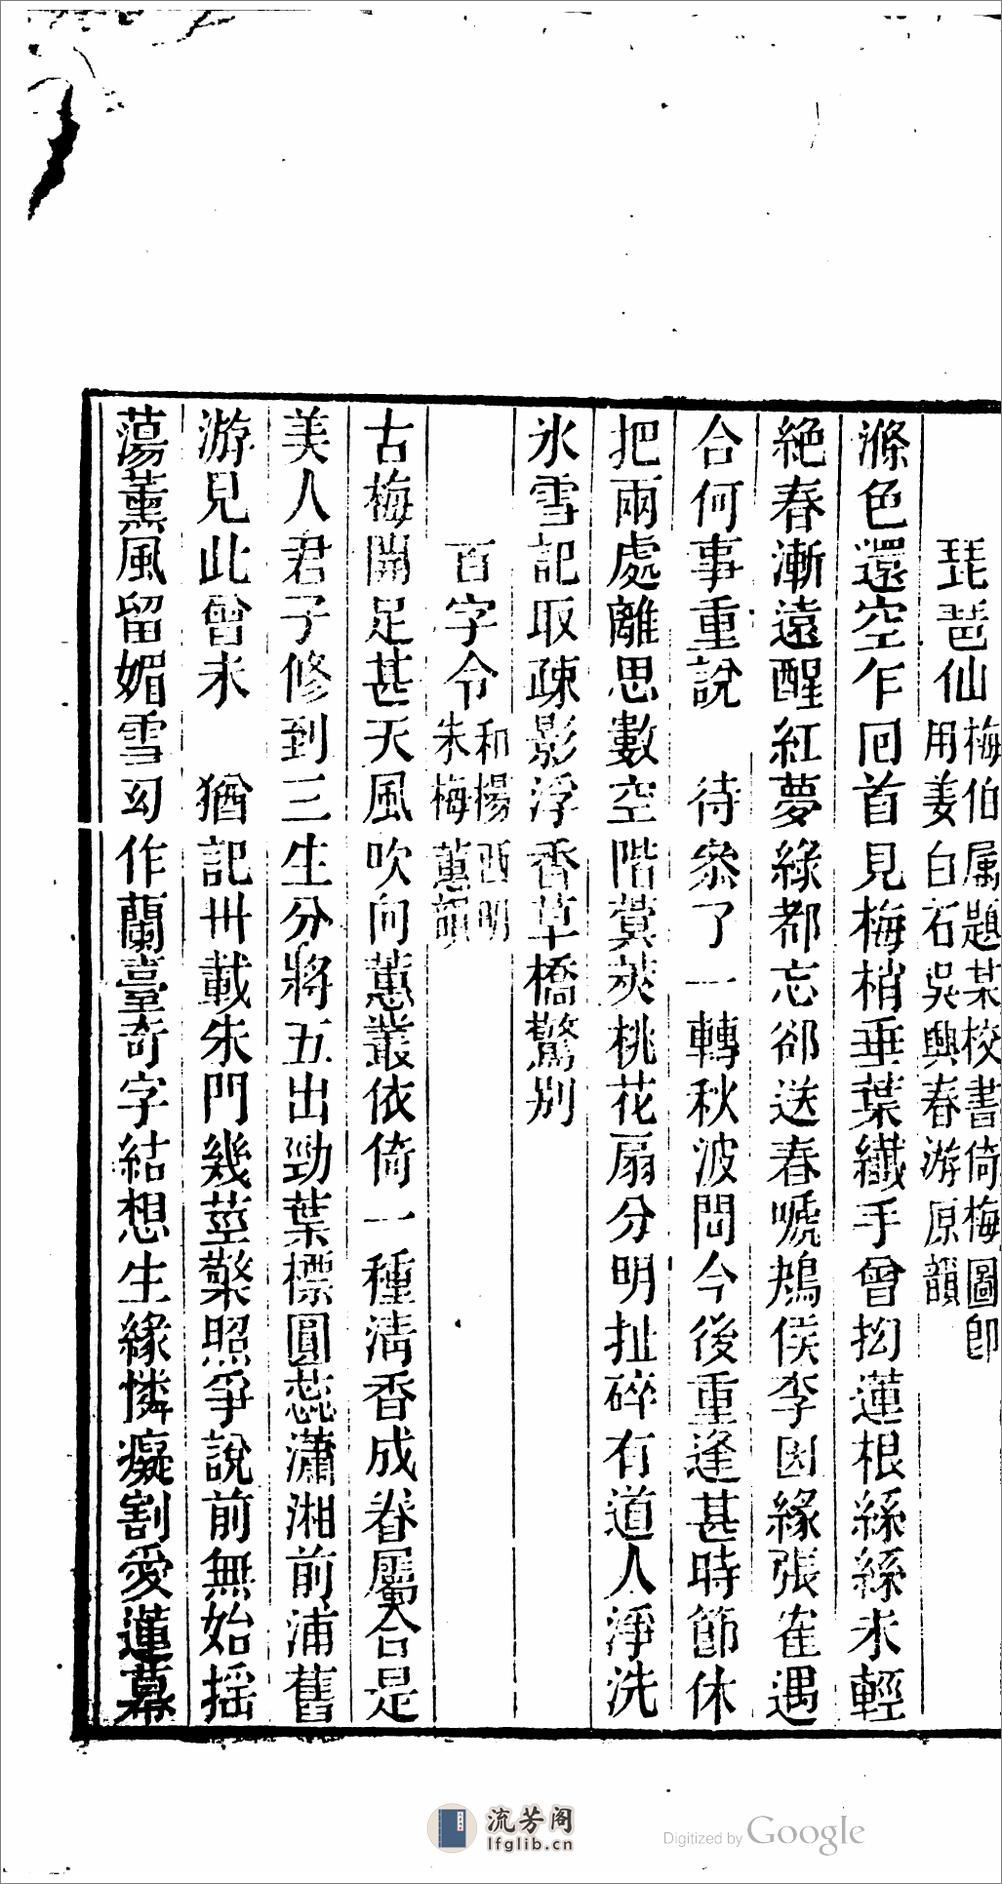 琵琶仙 梅伯属題某校書倚梅圖卽
用姜白石吳興春游原韻
滌色還空乍囘首見梅梢垂葉纖手曾拗蓮根絲絲未輕
絶春漸遠醒紅夢緣都忘卻送春啼鴂侯李因緣張崔遇
合何事重說　待叅了一轉秋波問今後重逢甚時節休
把兩處離思數空階蓂莢桃花扇分明扯碎有道人淨洗
氷雪記取疎影浮香草橋驚別
百字令 和楊西明
朱梅蕙韻
古梅開足甚天風吹向蕙叢依倚一種淸香成眷屬合是
美人君子修到三生分將五出勁葉標圓蕊瀟湘前浦舊
游見此曾未　猶記卅載朱門幾莖檠照爭說前無始搖
蕩薰風留媚雪幻作蘭臺奇字結想生緣憐癡割愛蓮幕
流芳阁
lfglib.cn
Digitized by Google